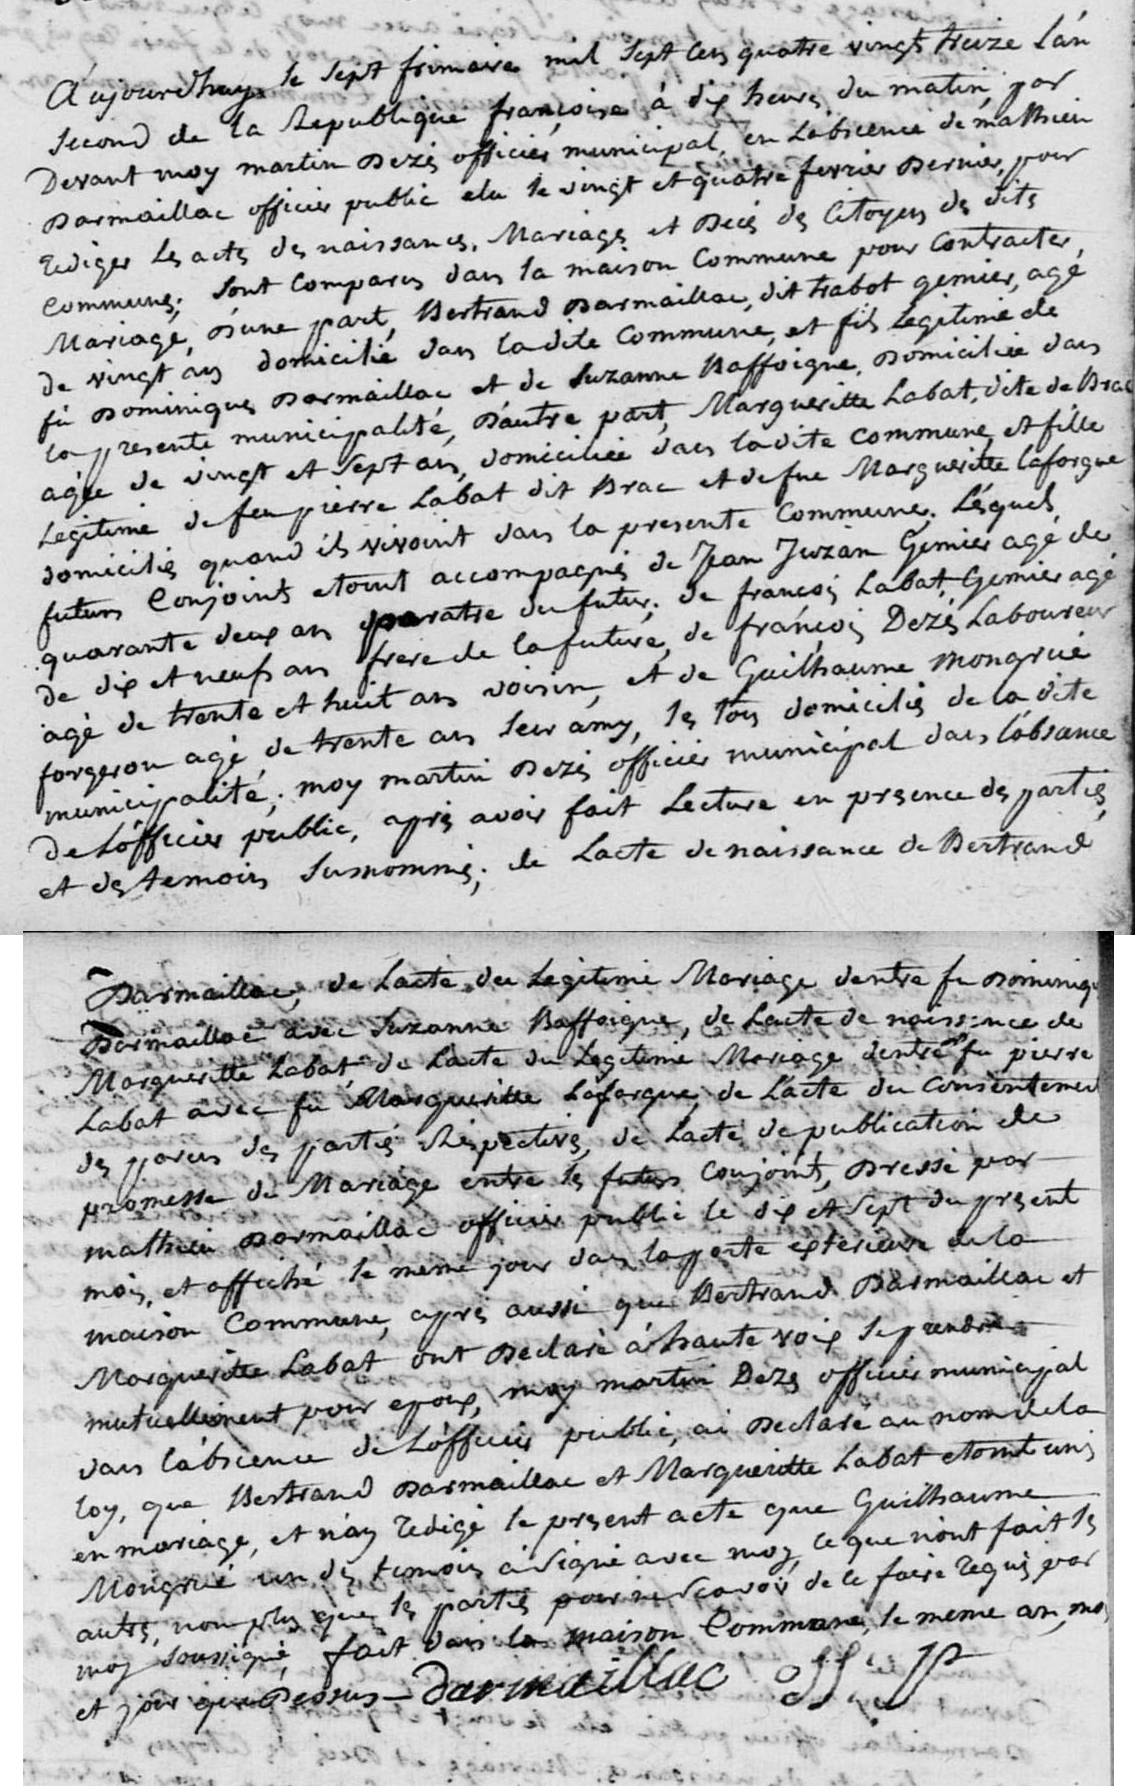 Aujourdhuy le sept frimaire mil sept cens quatre vingts treize L'an
second de la Republique françoise à dix heures du matin, par
Devant moy martin Dezés officier municipal, en L'absience de mathieu
Darmaillac officier public elu le vingt et quatre fevrier Dernier, pour
rediger Les actes des naissances, Mariages et Decés des Citoyens des dits
communes; sont comparus dans la maison Commune pour Contracter
Mariage, D'une part, Bertrand Darmaillac, dit trabot gemier, agé
de vingt ans domicilié dans la dite Commune, et fils Légitime de
fû Dominique Darmaillac et de Suzanne Baffoigne, Domiciliée dans
la presente municipalité, D'autre part, Margueritte Labat, dite de Brac
agée de vingt et sept ans, domiciliée dans la dite commune, et fille
Legitime de feu pierre Labat dit Brac et de fue Margueritte Laforgue
domiciliés quand ils vivoint dans la presente Commune. Lésquels
futurs Conjoints etoint accompagnés de Jean Juzan Gemier agé de
quarante deux ans paratre du futur; de françois Labat, Gemier agé
de dix et neufs ans frere de la future, de françois Dezés Laboureur
agé de trente et huit ans voisin, et de Guilhaume Mongrué
forgeron agé de trente ans leur amy, les tous domiciliés de la dite
municipalité; moy martin Dezés officier municipal dans L'absance
De L'officier public, aprés avois fait Lecture en presence des parties,
et des temoins susnommés; de Lacte de naissance de Bertrand
Darmaillac, de Lacte du Legitime Mariage dentre fu Dominique
Darmaillac avec Suzanne Baffoigne, de Lacte de naissence de
Margueritte Labat, de Lacte du Legitime Mariage dentre fu pierre
Labat avec fu Margueritte Laforgue, de L'acte du Consentement
des parens des partiés Respectives, de Lacte de publication de
promesse de Mariage entre les futurs Conjoints, Dressé par
mathieu Darmaillac officier public le dix et sept du present
mois, et affiché le même jour dans la porte exterieure de la
maison Commune, aprés aussi que Bertrand Darmaillac et
Margueritte Labat ont Declaré à haute voix se prendre
mutuellement pour epoux, moy martin Dezes officier municipal
dans l'absience de L'officier public, ai Declaré au nom de la
loy, que Bertrand Darmaillac et Margueritte Labat etoint unis
en mariage, et n'ay redigé le present acte que Guilhaume
Mongrué un des temoins a signé avec moy, ce que n'ont fait les
autres, non plus que les partiés pour ne scavoir de ce faire requis par
moy soussigné, fait dans la maison Commune, le meme an, mois
et jour que Dessus – Darmaillac off. P